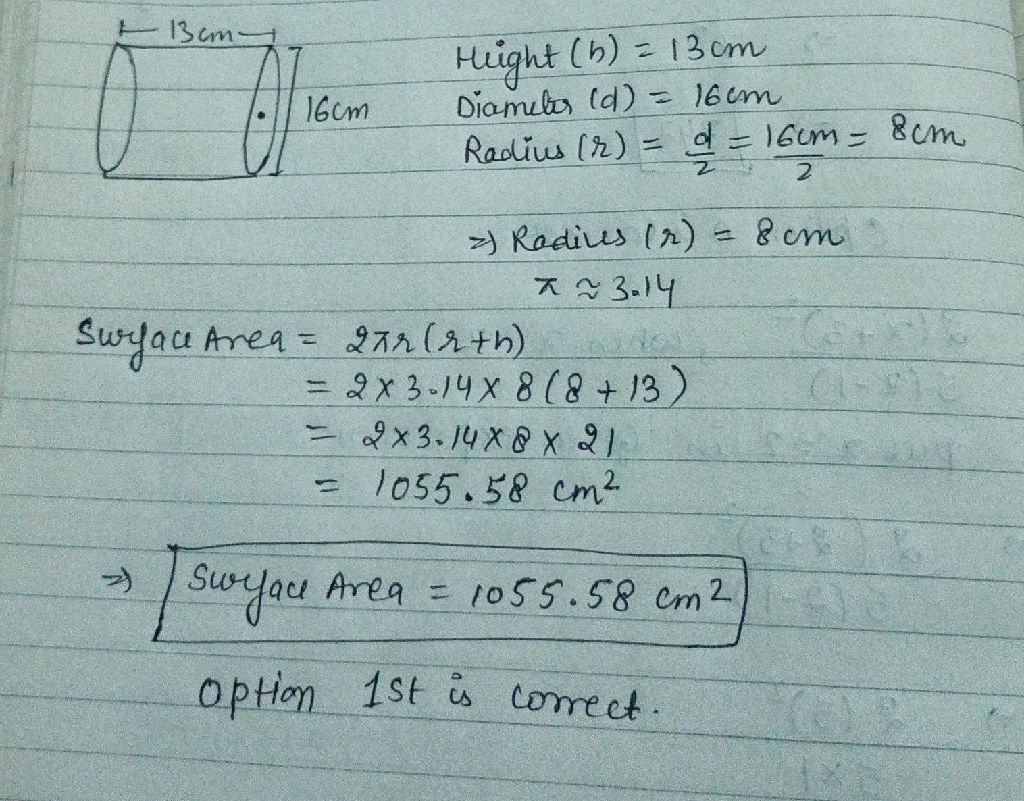 13cm
16cm
Height (h) = 13cm
Diameter (d) = 16cm
Radius (r) = d/2 = 16cm/2 = 8cm
⇒ Radius (r) = 8cm
π ≈ 3.14
Surface Area = 2πr(r+h)
= 2 x 3.14 x 8 (8 + 13)
= 2 x 3.14 x 8 x 21
= 1055.58 cm²
⇒ Surface Area = 1055.58 cm²
Option 1st is correct.